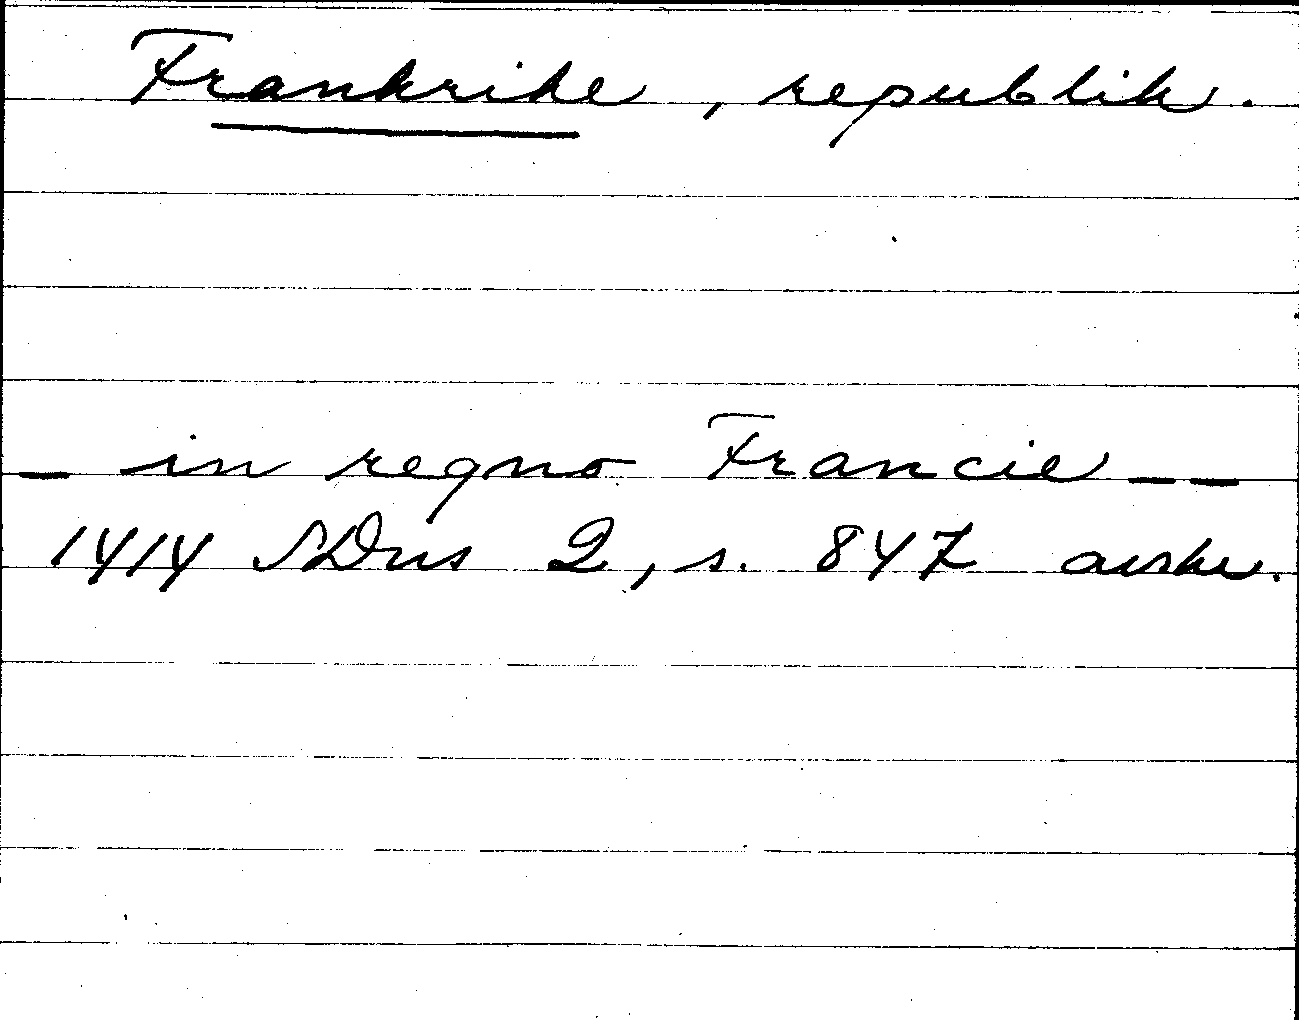 Frankrike, republik.
_ in regno Francie _ _
1414 SDns 2, s. 847 avskr.